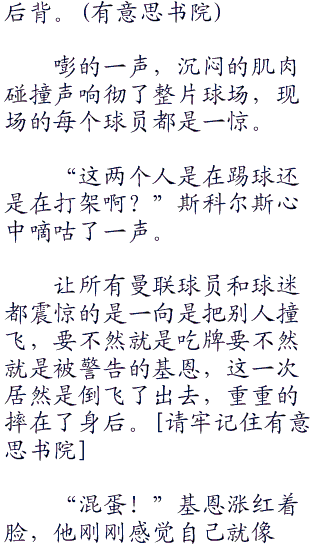 后背。(有意思书院)
嘭的一声，沉闷的肌肉
碰撞声响彻了整片球场，现
场的每个球员都是一惊。
“这两个人是在踢球还
是在打架啊？”斯科尔斯心
中嘀咕了一声。
让所有曼联球员和球迷
都震惊的是一向是把别人撞
飞，要不然就是吃牌要不然
就是被警告的基恩，这一次
居然是倒飞了出去，重重的
摔在了身后。[请牢记住有意
思书院]
“混蛋！”基恩涨红着
脸，他刚刚感觉自己就像